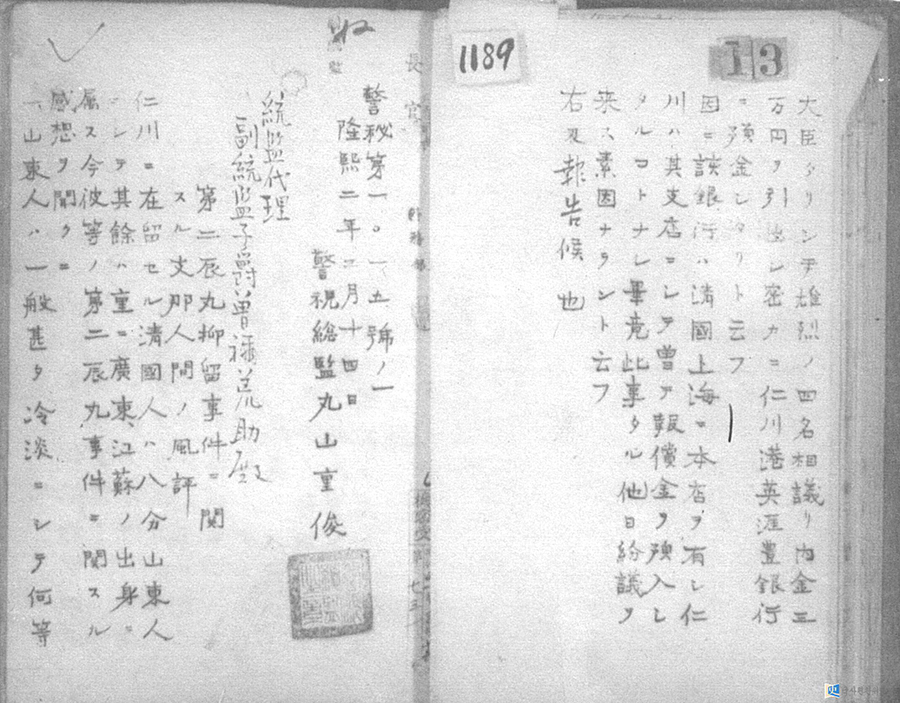 1189
13
大臣タリシ李雄烈ノ四名相議リ内金三
万円ヲ引出シ密カニ仁川港英滙豊銀行
ニ預金シタリト云フ
因ニ該銀行ハ清國上海ニ本店ヲ有シ仁
川ハ其支店ニシテ曾テ報償金ヲ預入シ
タルコトナシ畢竟此事タル他日紛議ヲ
来ス素因ナラント云フ
右及報告候也
長官
警秘第一〇一五號ノ一
隆熙二年三月十四日
警視總監丸山重俊
統監代理
副統監子爵曾禰荒助殿
第二辰丸抑留事件ニ関
スル支那人間ノ風評
仁川ニ在留セル清國人ハ八分山東人
ニシテ其餘ハ重ニ廣東江蘇ノ出身ニ
属ス今彼等ノ第二辰丸事件ニ関スル
感想ヲ聞クニ
一、山東人ハ一般甚タ冷淡ニシテ何等